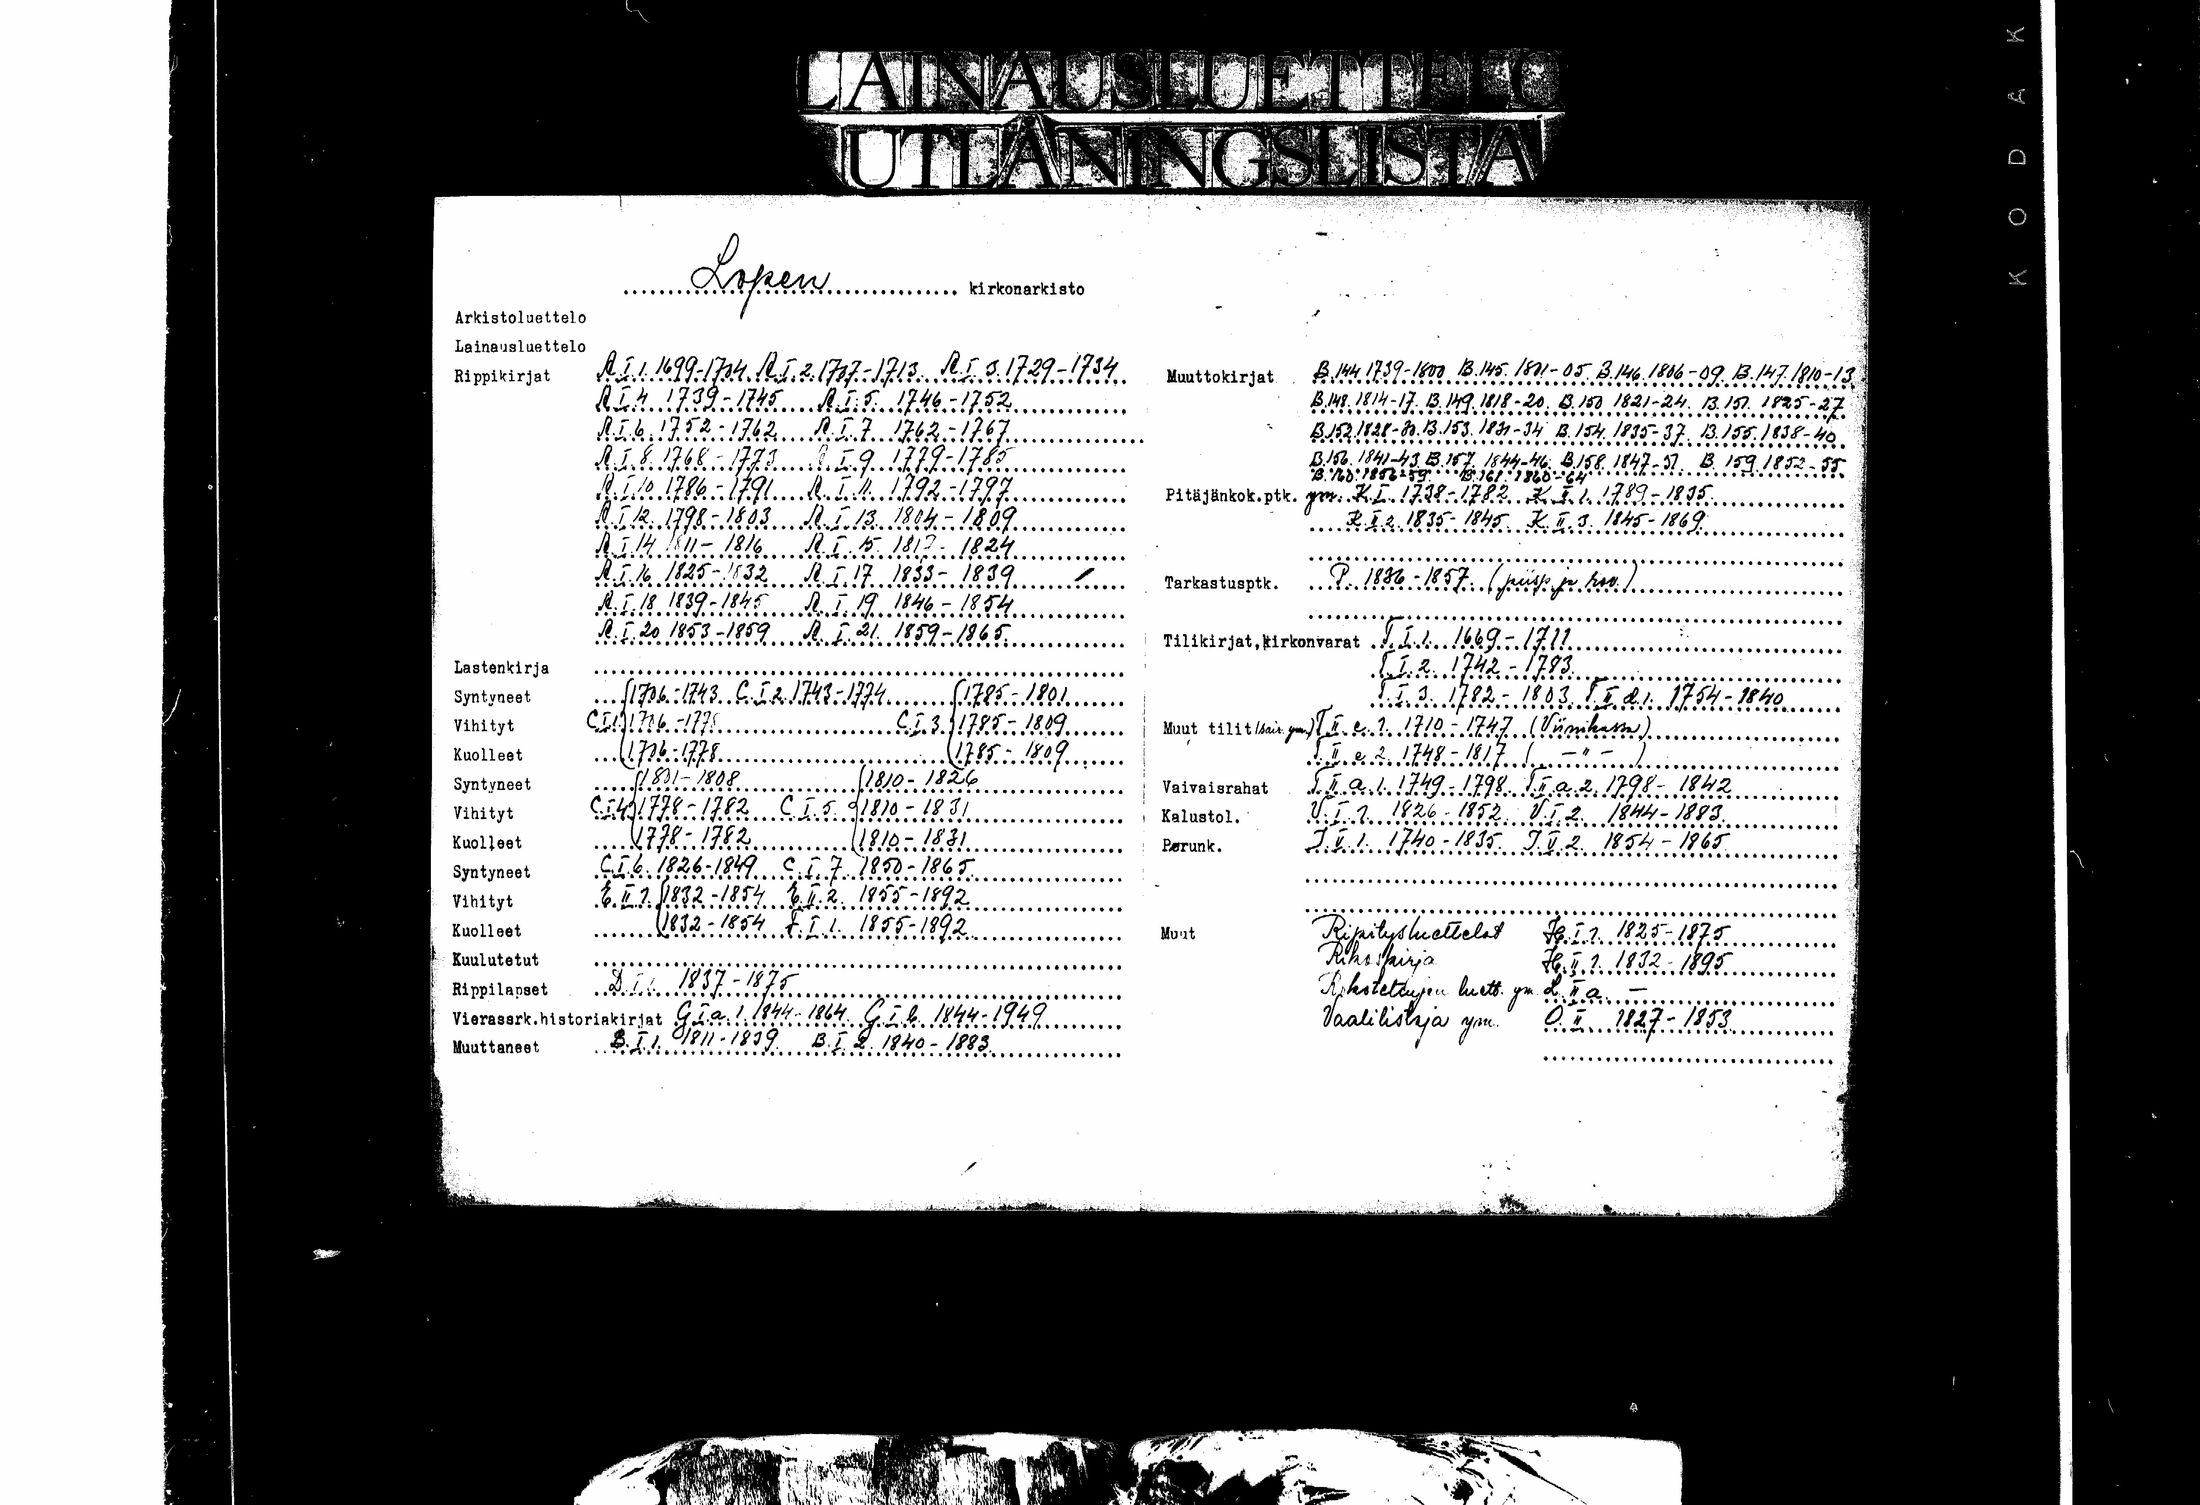 LAINAUSLUETTELO
UTLÅNINGSLISTA
KODAK
Lopen kirkonarkisto
Arkistoluettelo
Lainausluettelo
Rippikirjat A.I.1. 1699-1704 A.I.2. 1707-1713. A.I.3. 1729-1734
A.I.4. 1739-1745 A.I.5. 1746-1752
A.I.6. 1752-1762 A.I.7 1762-1767
A.I.8. 1768-1773 A.I.9 1779-1785
A.I.10 1786-1791 A.I.11. 1792-1797
A.I.12. 1798-1803 A.I.13. 1804-1809
A.I.14 1811-1816 A.I.15. 1817-1824
A.I.16. 1825-1832 A.I.17 1833-1839
A.I.18 1839-1845 A.I.19 1846-1854
A.I.20 1853-1859 A.I.21. 1859-1865
Lastenkirja
Syntyneet 1706-1743 C.I.2. 1743-1774 1785-1801
Vihityt C.I.1. 1706-1778 C.I.3. 1785-1809
Kuolleet 1706-1778 1785-1809
Syntyneet 1801-1808 1810-1826
Vihityt C.I.4. 1778-1782 C.I.5. 1810-1831
Kuolleet 1778-1782 1810-1831
Syntyneet C.I.6. 1826-1849 C.I.7. 1850-1865
Vihityt E.II.1. 1832-1854 E.II.2. 1855-1892
Kuolleet 1832-1854 F.I.1. 1855-1892
Kuulutetut
Rippilapset D.I.1. 1837-1875
Vierassrk.historiakirjat G.I.a.1. 1844-1864. G.I.b. 1844-1949
Muuttaneet B.I.1. 1811-1839 B.I.2. 1840-1883
Muuttokirjat B.144 1739-1800 B.145. 1801-05. B.146. 1806-09. B.147. 1810-13
B.148. 1814-17. B.149. 1818-20. B.150 1821-24. B.151. 1825-27
B.152. 1828-30. B.153. 1831-34 B.154. 1835-37. B.155. 1838-40
B.156. 1841-43 B.157. 1844-46. B.158. 1847-51. B.159. 1852-55
B.160. 1856-59. B.161. 1860-64
Pitäjänkok.ptk. ym. K.I. 1738-1782 K.II.1. 1789-1835
K.II.2 1835-1845. K.II.3. 1845-1869.
Tarkastusptk. P. 1836-1857. (piisp. ja rov.)
Tilikirjat, kirkonvarat T.I.1. 1669-1711
T.I.2. 1742-1783
T.I.3. 1782-1803. T.II.d.1. 1754-1840
Muut tilit (sair. ym.) T.II.c.1. 1710-1747 (Viinikassa)
T.II.c.2. 1748-1817 ( - " - )
Vaivaisrahat T.II.a.1. 1749-1798 T.II.a.2. 1798-1842
Kalustol. V.I.1. 1826-1852 V.I.2. 1844-1883.
Perunk. J.V.1. 1740-1835. J.V.2. 1854-1865
Muut Ripitysluettelot H.I.1. 1825-1875
Rikoskirja H.II.1. 1832-1895
Rokotettujen luett. ym. L.II.a. -
Vaalilistoja ym. O.II. 1827-1853